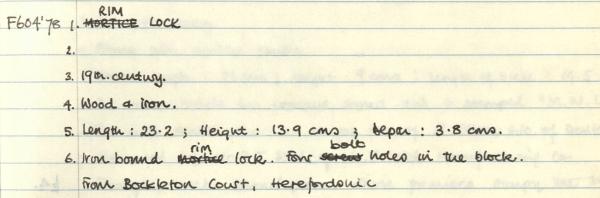 RIM
F604'78 1. MORTICE LOCK
2.
3. 19th. century.
4. Wood & iron.
5. Length : 23.2 ; Height : 13.9 cms ; Depth : 3.8 cms.
rim bolt
6. Iron bound mortice lock. Four screws holes in the block.
From Bockleton Court, Herefordshire